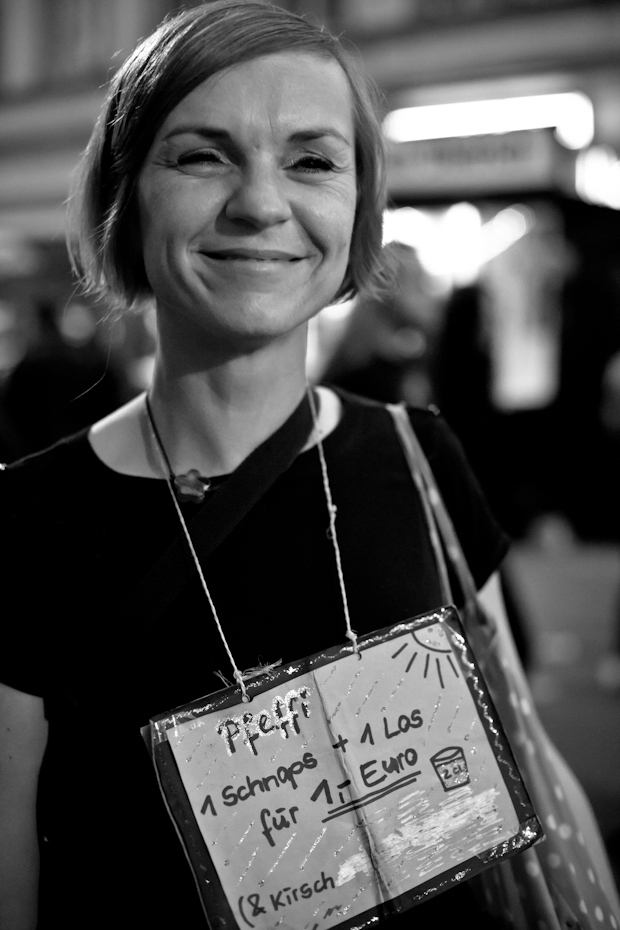 Pfeffi
1 Schnaps + 1 Los
für 1,- Euro
2cl
(& Kirsch